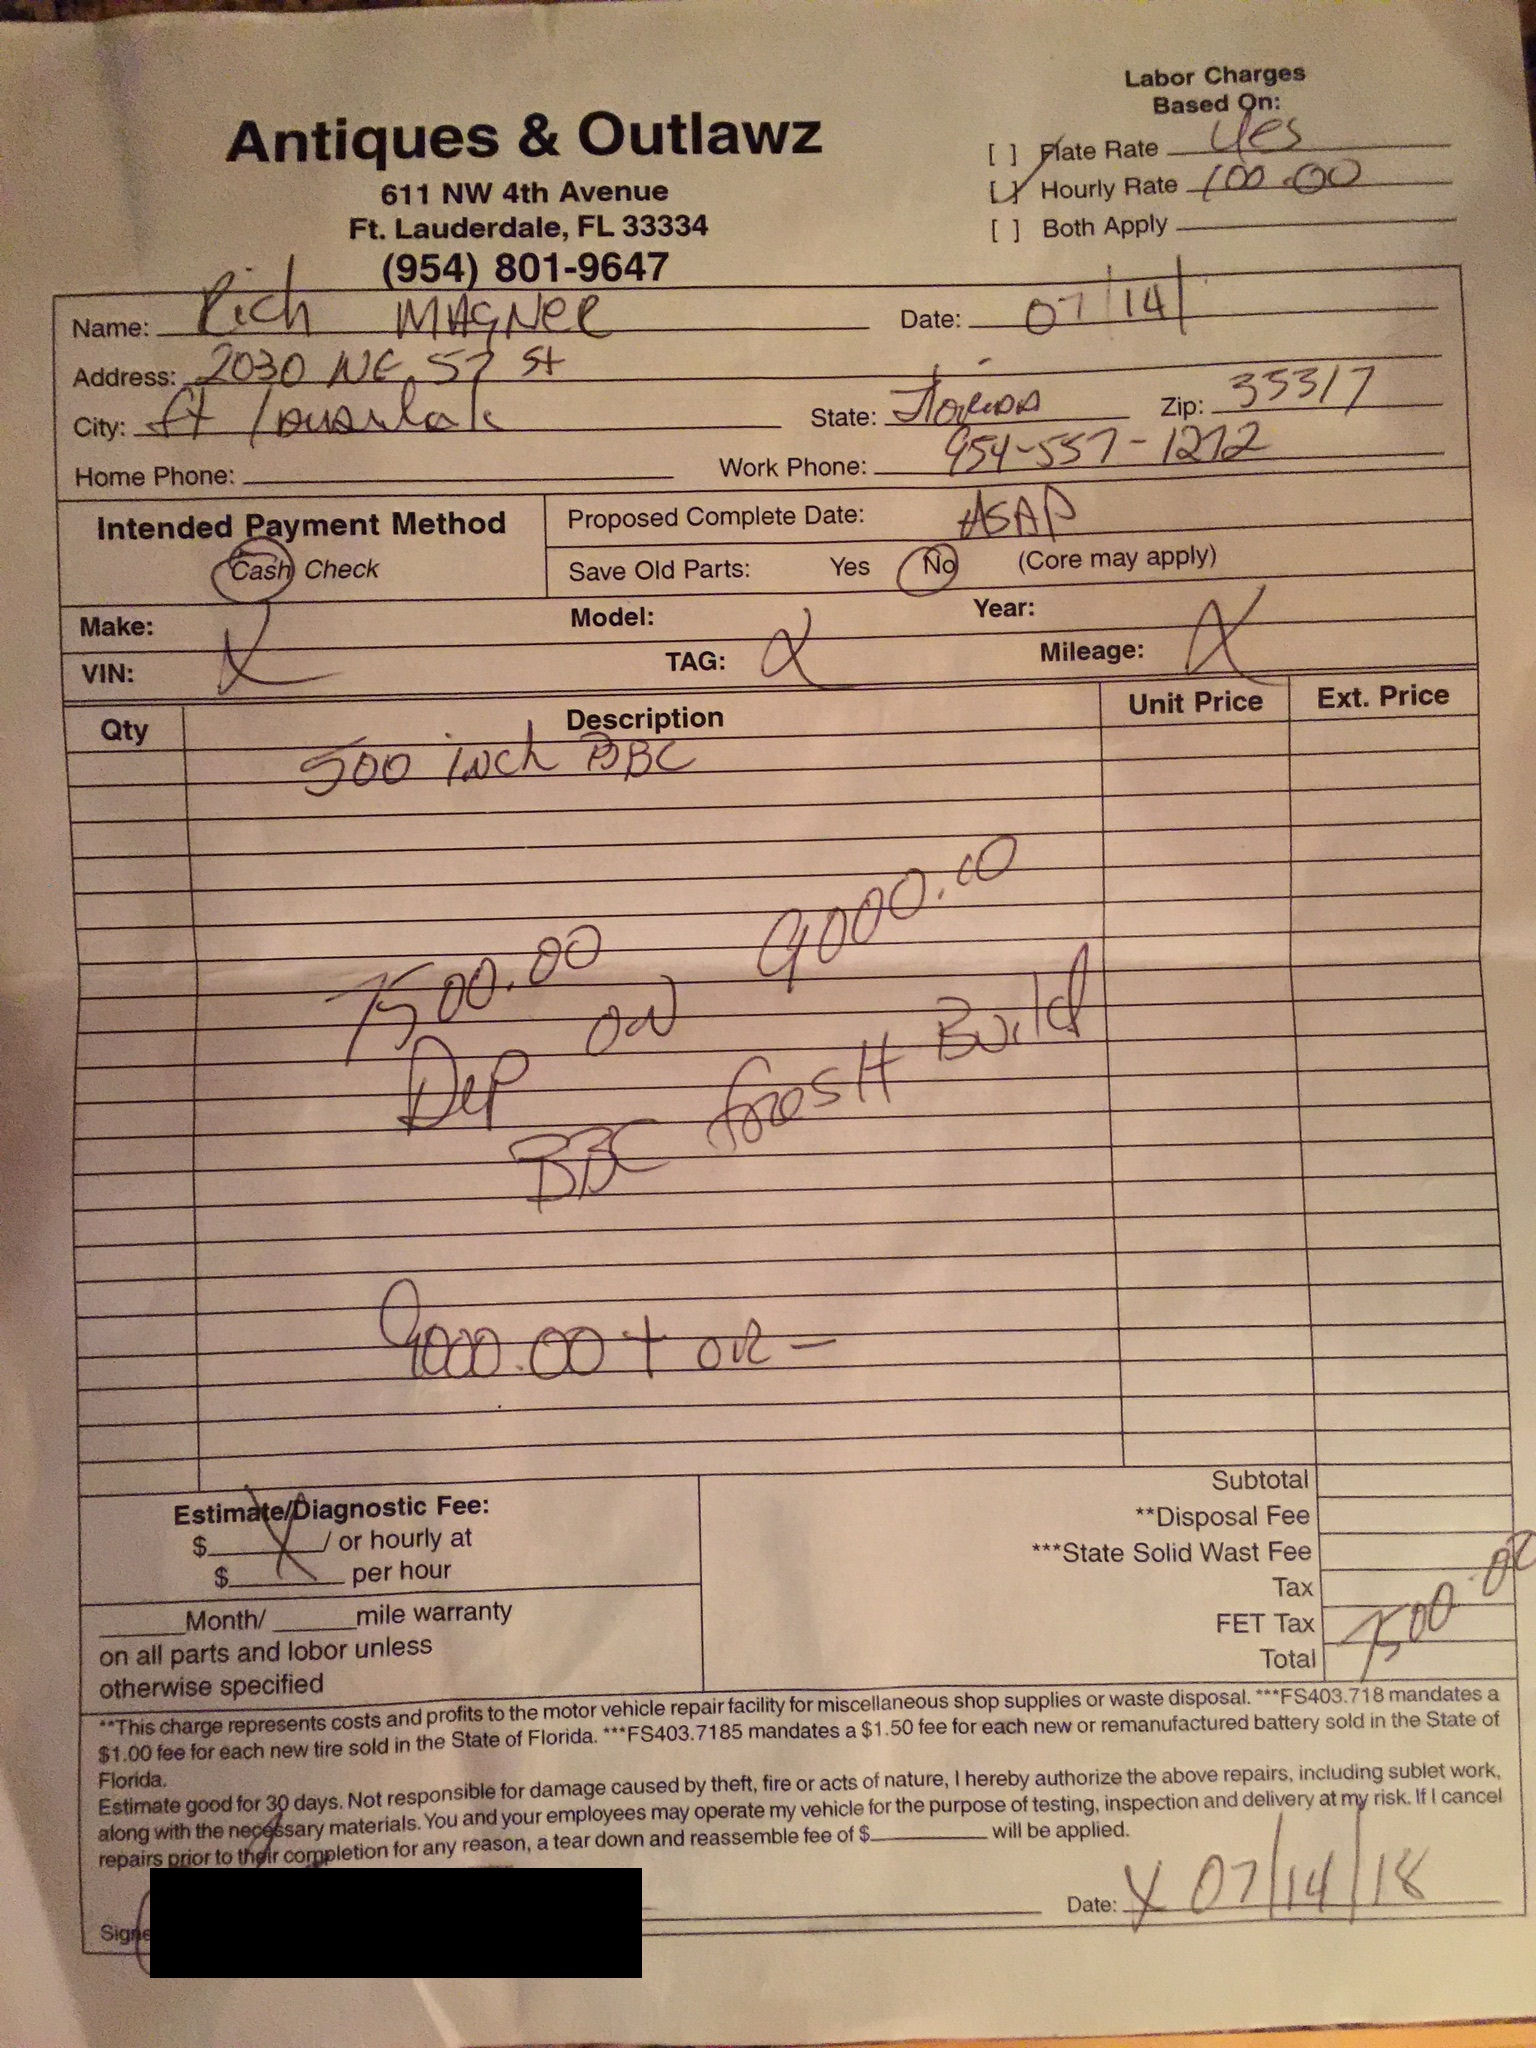 Labor Charges
Based On:
Antiques & Outlawz
611 NW 4th Avenue
Ft. Lauderdale, FL 33334
(954) 801-9647
[ ] Flate Rate yes
[ ] Hourly Rate 100.00
[ ] Both Apply
Name: Rich MAGNER Date: 07/14/
Address: 2030 NE 57 St
City: ft State: Florida Zip: 33317
Home Phone: Work Phone: 954-557-1272
Intended Payment Method
Cash Check
Proposed Complete Date: ASAP
Save Old Parts: Yes No (Core may apply)
Make: Model: Year:
VIN: X TAG: X Mileage: X
Qty Description Unit Price Ext. Price
500 inch BBC
7500.00 Dep on 9000.00
BBC fresH Build
9000.00 + or -
Estimate/Diagnostic Fee:
$ X / or hourly at
$ per hour
Month/ mile warranty
on all parts and lobor unless
otherwise specified
Subtotal
**Disposal Fee
***State Solid Wast Fee
Tax
FET Tax
Total 7500.00
**This charge represents costs and profits to the motor vehicle repair facility for miscellaneous shop supplies or waste disposal. ***FS403.718 mandates a
$1.00 fee for each new tire sold in the State of Florida. ***FS403.7185 mandates a $1.50 fee for each new or remanufactured battery sold in the State of
Florida.
Estimate good for 30 days. Not responsible for damage caused by theft, fire or acts of nature, I hereby authorize the above repairs, including sublet work,
along with the necessary materials. You and your employees may operate my vehicle for the purpose of testing, inspection and delivery at my risk. If I cancel
repairs prior to their completion for any reason, a tear down and reassemble fee of $ will be applied.
Date: X 07/14/18